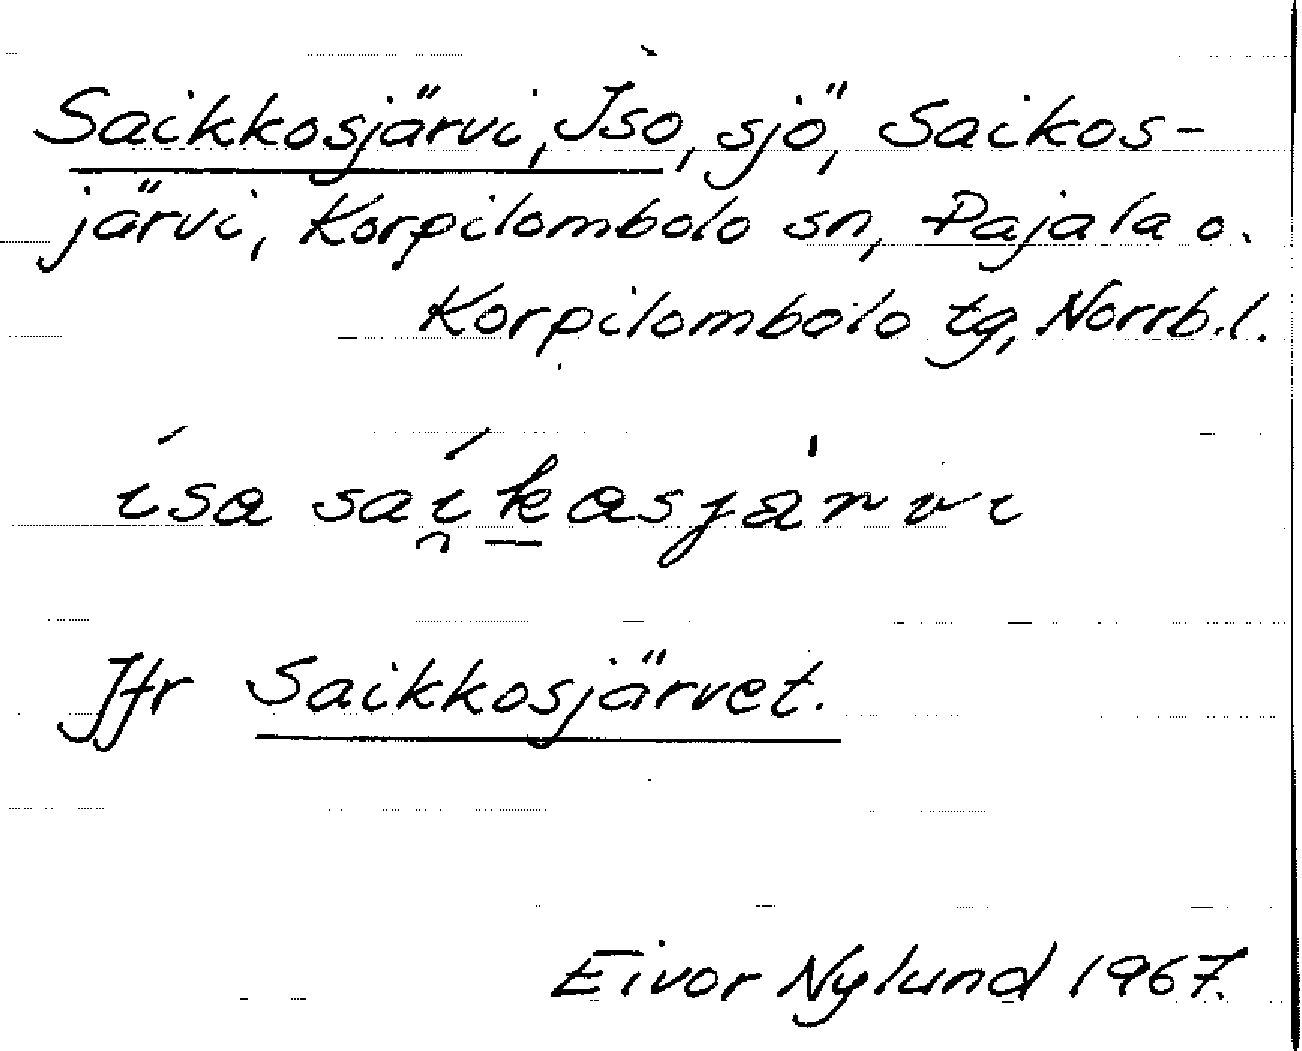 Saikkosjärvi, Iso, sjö, Saikos-
järvi, Korpilombolo sn, Pajala o.
Korpilombolo tg, Norrb. l.
ísa saí̯k̲asjàrvi
Jfr Saikkosjärvet.
Eivor Nylund 1967.